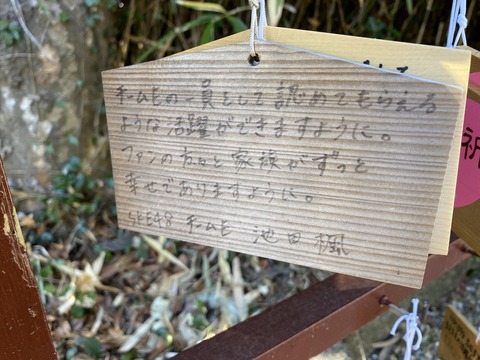 チームEの一員として認めてもらえる
ような活躍ができますように。
ファンの方々と家族がずっと
幸せでありますように。
SKE48 チームE 池田 楓
祈